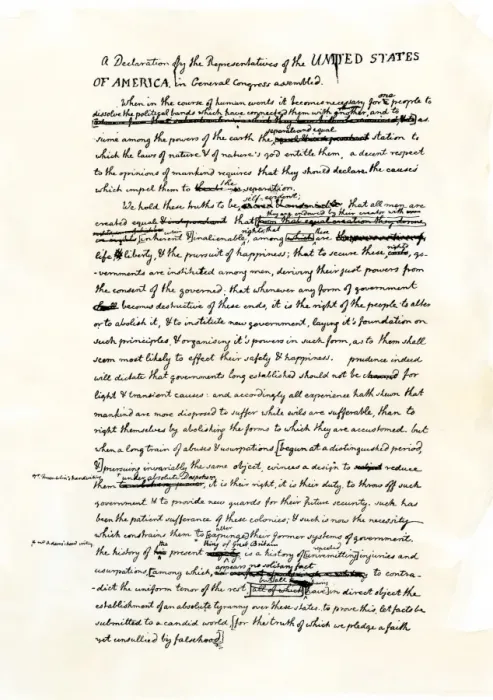 A Declaration by the Representatives of the UNITED STATES
OF AMERICA, in General Congress assembled.
When in the course of human events it becomes necessary for one people to
dissolve the political bands which have connected them with another, and to
assume among the powers of the earth the separate and equal station to
which the laws of nature & of nature's god entitle them, a decent respect
to the opinions of mankind requires that they should declare the causes
which impel them to the separation.
We hold these truths to be self-evident; that all men are
created equal that they are endowed by their creator with
inherent & inalienable rights; that among these are
life liberty, & the pursuit of happiness; that to secure these rights, go-
-vernments are instituted among men, deriving their just powers from
the consent of the governed; that whenever any form of government
becomes destructive of these ends, it is the right of the people to alter
or to abolish it, & to institute new government, laying it's foundation on
such principles, & organising it's powers in such form, as to them shall
seem most likely to effect their safety & happiness. prudence indeed
will dictate that governments long established should not be changed for
light & transient causes: and accordingly all experience hath shewn that
mankind are more disposed to suffer while evils are sufferable, than to
right themselves by abolishing the forms to which they are accustomed. but
when a long train of abuses & usurpations [begun at a distinguished period,
&] pursuing invariably the same object, evinces a design to reduce
them under absolute Despotism, it is their right, it is their duty, to throw off such
government & to provide new guards for their future security. such has
been the patient sufferance of these colonies; & such is now the necessity
which constrains them to alter [expunge] their former systems of government.
the history of the present king of Great Britain is a history of [unremitting] repeated injuries and
usurpations, [among which appears no solitary fact to contra-
-dict the uniform tenor of the rest all of which] have in direct object the
establishment of an absolute tyranny over these states. to prove this, let facts be
submitted to a candid world, [for the truth of which we pledge a faith
yet unsullied by falsehood]